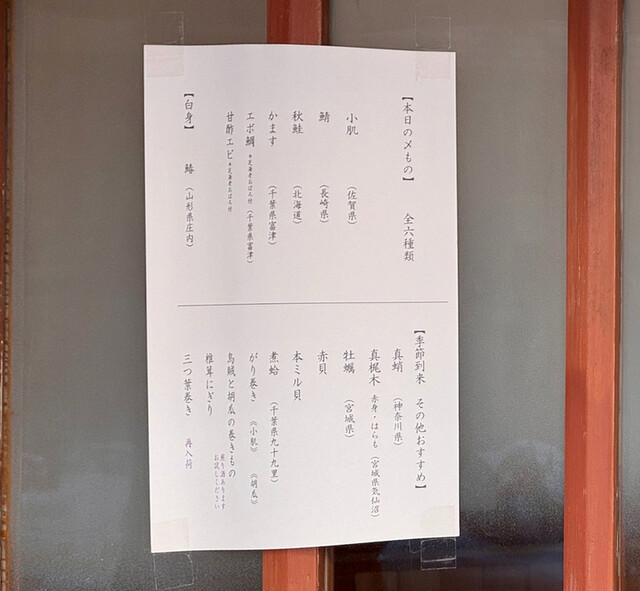 【本日の〆もの】 全六種類
小肌 (佐賀県)
鯖 (長崎県)
秋鮭 (北海道)
かます (千葉県富津)
エボ鯛 *芝海老おぼろ付 (千葉県富津)
甘酢エビ *芝海老おぼろ付
【白身】 鰆 (山形県庄内)
【季節到来 その他おすすめ】
真蛸 (神奈川県)
真梶木 赤身・はらも (宮城県気仙沼)
牡蠣 (宮城県)
赤貝
本ミル貝
煮蛤 (千葉県九十九里)
がり巻き 《小肌》 《胡瓜》
烏賊と胡瓜の巻きもの
煎り酒あります
お試しください
椎茸にぎり
三つ葉巻き 再入荷